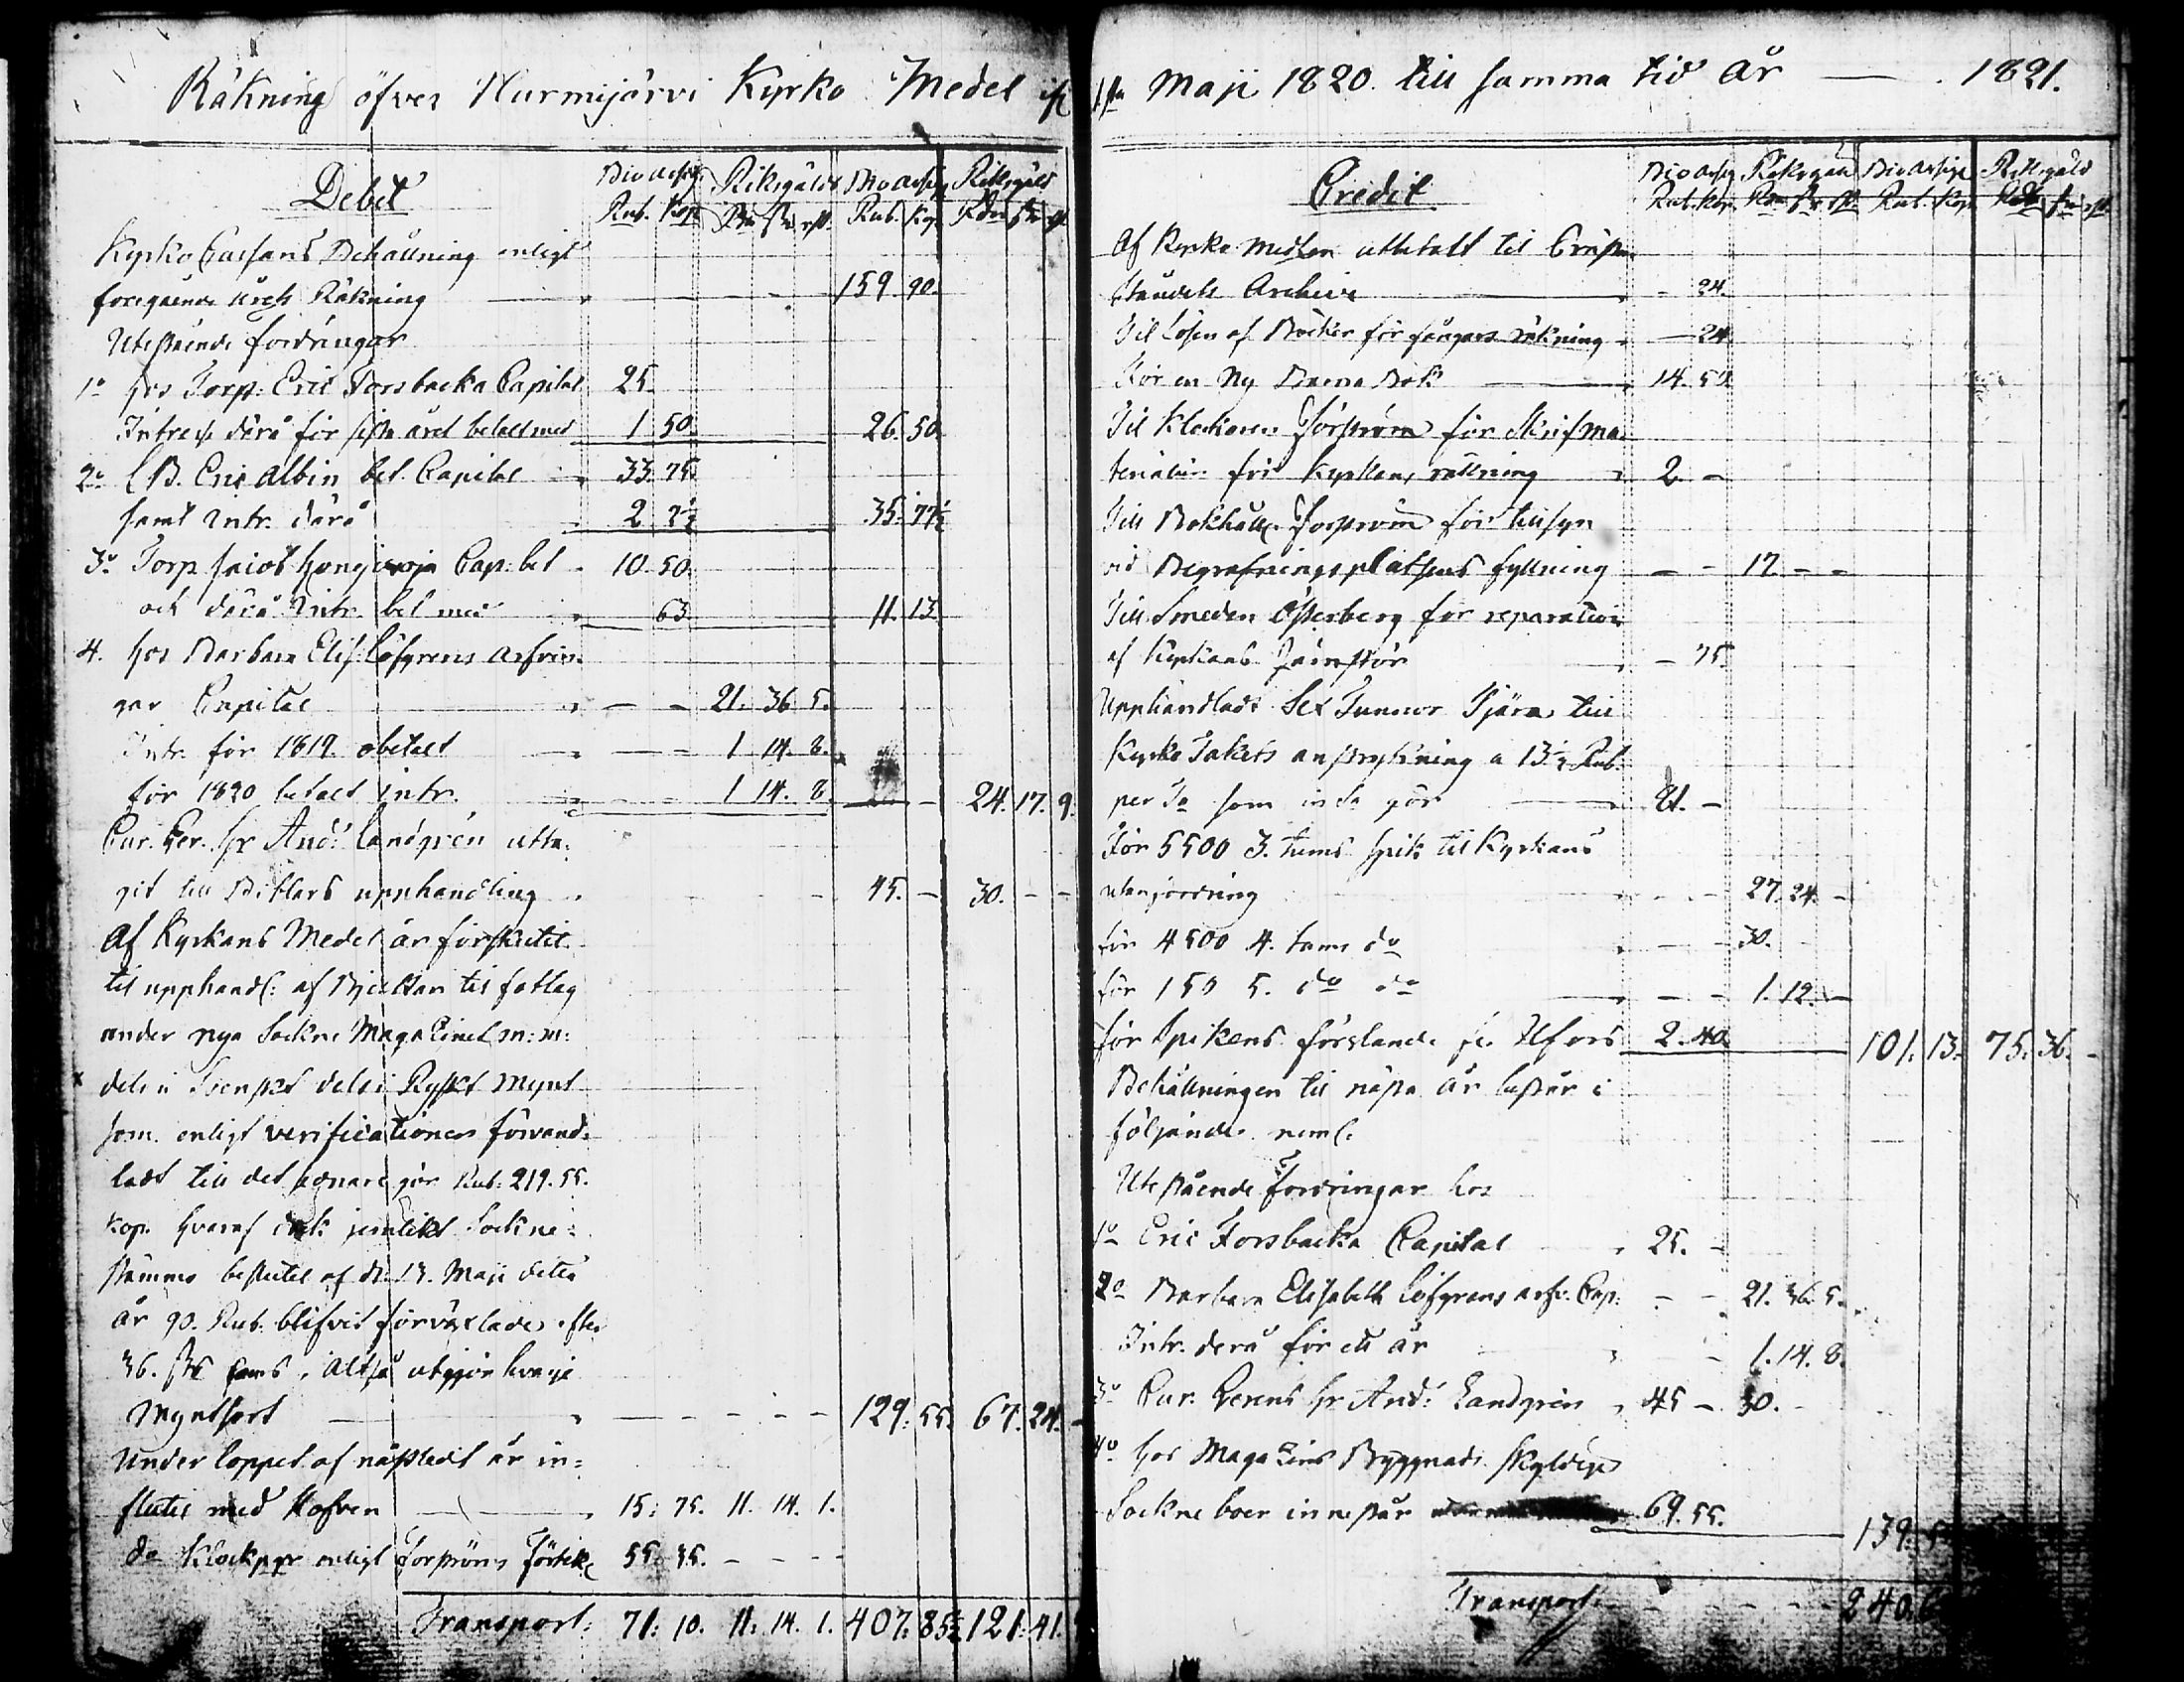 Räkning öfver Nurmijärvi Kyrko Medel ifr 1sta Maji 1820. till samma tid år — 1821.
Debet
Bco assign. Riksgälds Bco assign Riksgäld
Rub. Kop. Rdr sk rst. Rub. Kop. Rdr sk rst
Kyrko Cassans Behållning enligt
föregående årets Räkning 159. 90.
Utestående fordringar
1o hos Torp: Eric Forsbacka Capital 25.
Intresse därå för sista året betalt med 1 50. 26. 50.
2o LB. Eric Albin bet. Capital 33. 75.
samt Intr. därå 2 2½ 35. 77½
3o Torp. Jacob Hongisoja Cap. bet 10 50.
och därå Intr. bet med 63. 11. 13.
4. hos Barbara Elis: Löfgrens arfvin-
gar Capital — — 21. 36 5.
Intr. för 1819. obetalt — — 1 14. 8.
för 1820 betalt intr. — — 1 14. 8. — — 24. 17. 9.
Cur. Ger. Hr And: Landgrén utta-
git till Bitlars upphandling 45. — 30. — —
Af Kyrkans Medel är förskutit
til upphandl: af Bjelkar til fotlag
under nya Sockne Magazinet m: m:
dels i Svenskt dels i Ryskt mynt
som enligt verificationer förvand-
ladt till det senare gör Rub: 219. 55.
kop. hvaraf dock jemlikt Sockne-
stämmo beslutet af d. 13. Maji detta
år 90. Rub. blifvit förväxlade efter
36. sk , altså utgjör hvarje
Myntsort — — — — 129. 55. 67. 24. —
Under loppet af nästledit år in-
flutit med Hofven 15: 75. 11. 14. 1.
do Klockpgr enligt Forströms Förtek 55. 35. — — —
Transport: 71: 10. 11. 14. 1. 407. 85½ 121. 41.
Credit
Bco assig Riksgäld Bco assign Riksgäld
Rub. Kop. Rdr sk rst Rub. Kop. Rdr sk rst
Af Kyrko medlen utbetalt til
Ståndets Archive — 24.
Til Lösen af Böcker för fångars räkning — 24
För en Ny Barna Bok 14. 50.
Til Klockaren Forström för Skrifma-
terialier för Kyrkans räkning 2 —
Till Bokhåll. Forström för tillsyn
vid Begrafningsplatsens fyllning — — 12. — —
Till Smeden Österberg för reparation
af Kyrkans — 75.
Upphandlade Sex Tunnor Tjära till
Kyrko Takets anstrykning a 13½ Rub.
per Ta som inde gör 81. —
För 5500 3. tums spik til Kyrkans
— — 27. 24. —
för 4500 4. tums do — — 30.
för 150 5. do do — — 1. 12. —
för Spikens förslande fr. Hfors 2. 40. 101. 13. 75. 36. —
Behållningen til nästa år består i
följande neml.
Utestående Fordringar hos
1o Eric Forsbacka Capital 25. —
2o Barbara Elisabeth Löfgrens arfv. Cap. — — 21. 36. 5.
Intr. derå för ett år — 1. 14. 8.
3o Cur. Gerens Hr And: Landgrén 45 — 30. —
4o hos Magazins Byggnads skyldige
Sockneboer innestår 69. 55. 139.
Transport. — — — — 240.